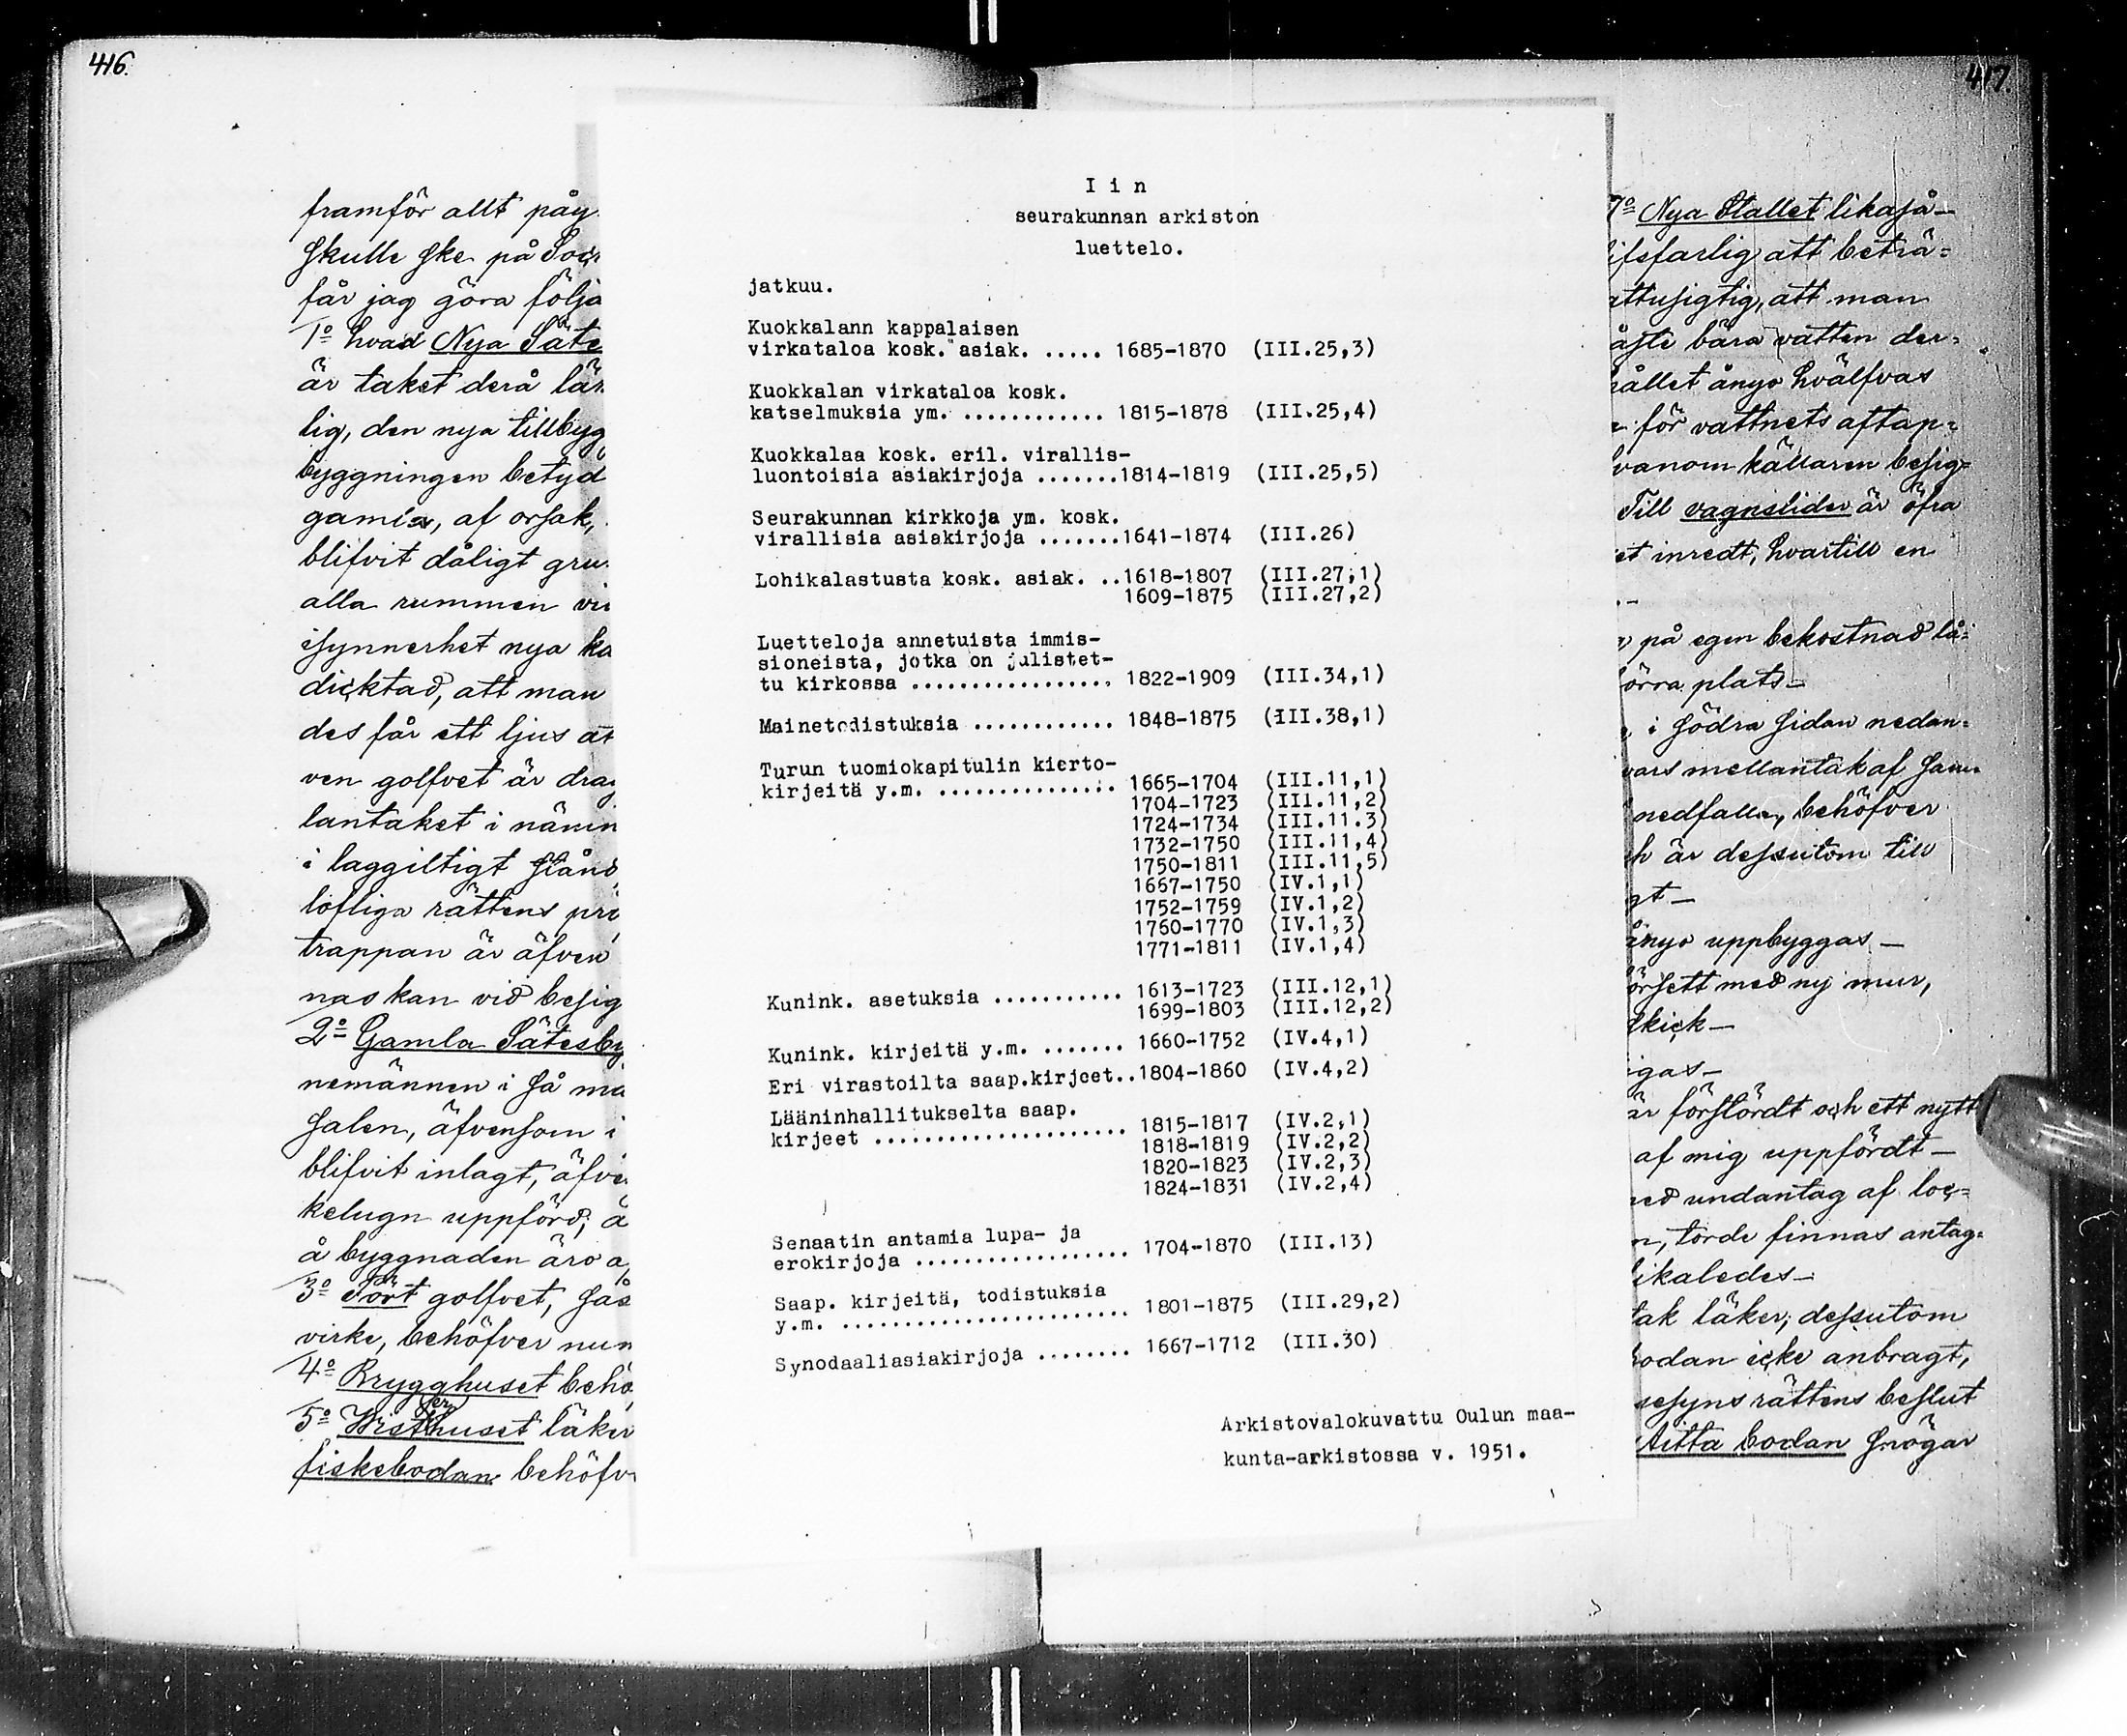 416.
framför allt påy
skulle ske på Soc
får jag göra följa
1º hvad Nya Säte
är taket derå lär
lig, den nya tillbyg
byggningen betyd
gamla, af orsak,
blifvit dåligt gru
alla rummen
isynnerhet nya ka
dicktad, att man
des får ett ljus at
ven golfvet är drag
lantaket i nämn
i laggiltigt stånd
lofliga rättens pri
trappan är äfven
nas kan vid besig
2º Gamla Sätesby
nemännen i så ma
salen, äfvensom i
blifvit inlagt, äfve
kelugn uppförd, a
å byggnaden äro a
3º Pört golfvet, sås
virke, behöfver nun
4º Brygghuset behö
5º Wisthuset läker
fiskebodan behöfv
I i n
seurakunnan arkiston
luettelo.
jatkuu.
Kuokkalann kappalaisen
virkataloa kosk. asiak. ..... 1685-1870 (III.25,3)
Kuokkalan virkataloa kosk.
katselmuksia ym. ............ 1815-1878 (III.25,4)
Kuokkalaa kosk. eril. virallis-
luontoisia asiakirjoja .......1814-1819 (III.25,5)
Seurakunnan kirkkoja ym. kosk.
virallisia asiakirjoja .......1641-1874 (III.26)
Lohikalastusta kosk. asiak. ..1618-1807 (III.27,1)
1609-1875 (III.27,2)
Luetteloja annetuista immis-
sioneista, jotka on julistet-
tu kirkossa ................. 1822-1909 (III.34,1)
Mainetodistuksia ............ 1848-1875 (III.38,1)
Turun tuomiokapitulin kierto-
kirjeitä y.m. ............... 1665-1704 (III.11,1)
1704-1723 (III.11,2)
1724-1734 (III.11.3)
1732-1750 (III.11,4)
1750-1811 (III.11,5)
1667-1750 (IV.1,1)
1752-1759 (IV.1,2)
1760-1770 (IV.1,3)
1771-1811 (IV.1,4)
Kunink. asetuksia ........... 1613-1723 (III.12,1)
1699-1803 (III.12,2)
Kunink. kirjeitä y.m. ....... 1660-1752 (IV.4,1)
Eri virastoilta saap.kirjeet..1804-1860 (IV.4,2)
Lääninhallitukselta saap.
kirjeet ..................... 1815-1817 (IV.2,1)
1818-1819 (IV.2,2)
1820-1823 (IV.2,3)
1824-1831 (IV.2,4)
Senaatin antamia lupa- ja
erokirjoja .................. 1704-1870 (III.13)
Saap. kirjeitä, todistuksia
y.m. ........................ 1801-1875 (III.29,2)
Synodaaliasiakirjoja ........ 1667-1712 (III.30)
Arkistovalokuvattu Oulun maa-
kunta-arkistossa v. 1951.
417.
7º Nya Stallet likaså—
ifsfarlig att beträ=
attusigtig, att man
åste bära vatten der=
hållet ånyo hvälfvas
för vattnets aftap=
vanom källaren besig=
Till vagnslider är öfra
et inredt, hvartill en
på egen bekostnad lå=
örra plats—
i södra sidan nedan=
vars mellantak af
nedfalla, behöfver
h är dessutom till
gt—
ånyo uppbyggas—
örsett med ny mur,
skick—
igas—
är förstördt och ett nytt
af mig uppfördt—
ned undantag af loc=
n, torde finnas antag=
ikaledes—
tak läker, dessutom
bodan icke anbragt,
sesyns rättens beslut
Aitta bodan snögar